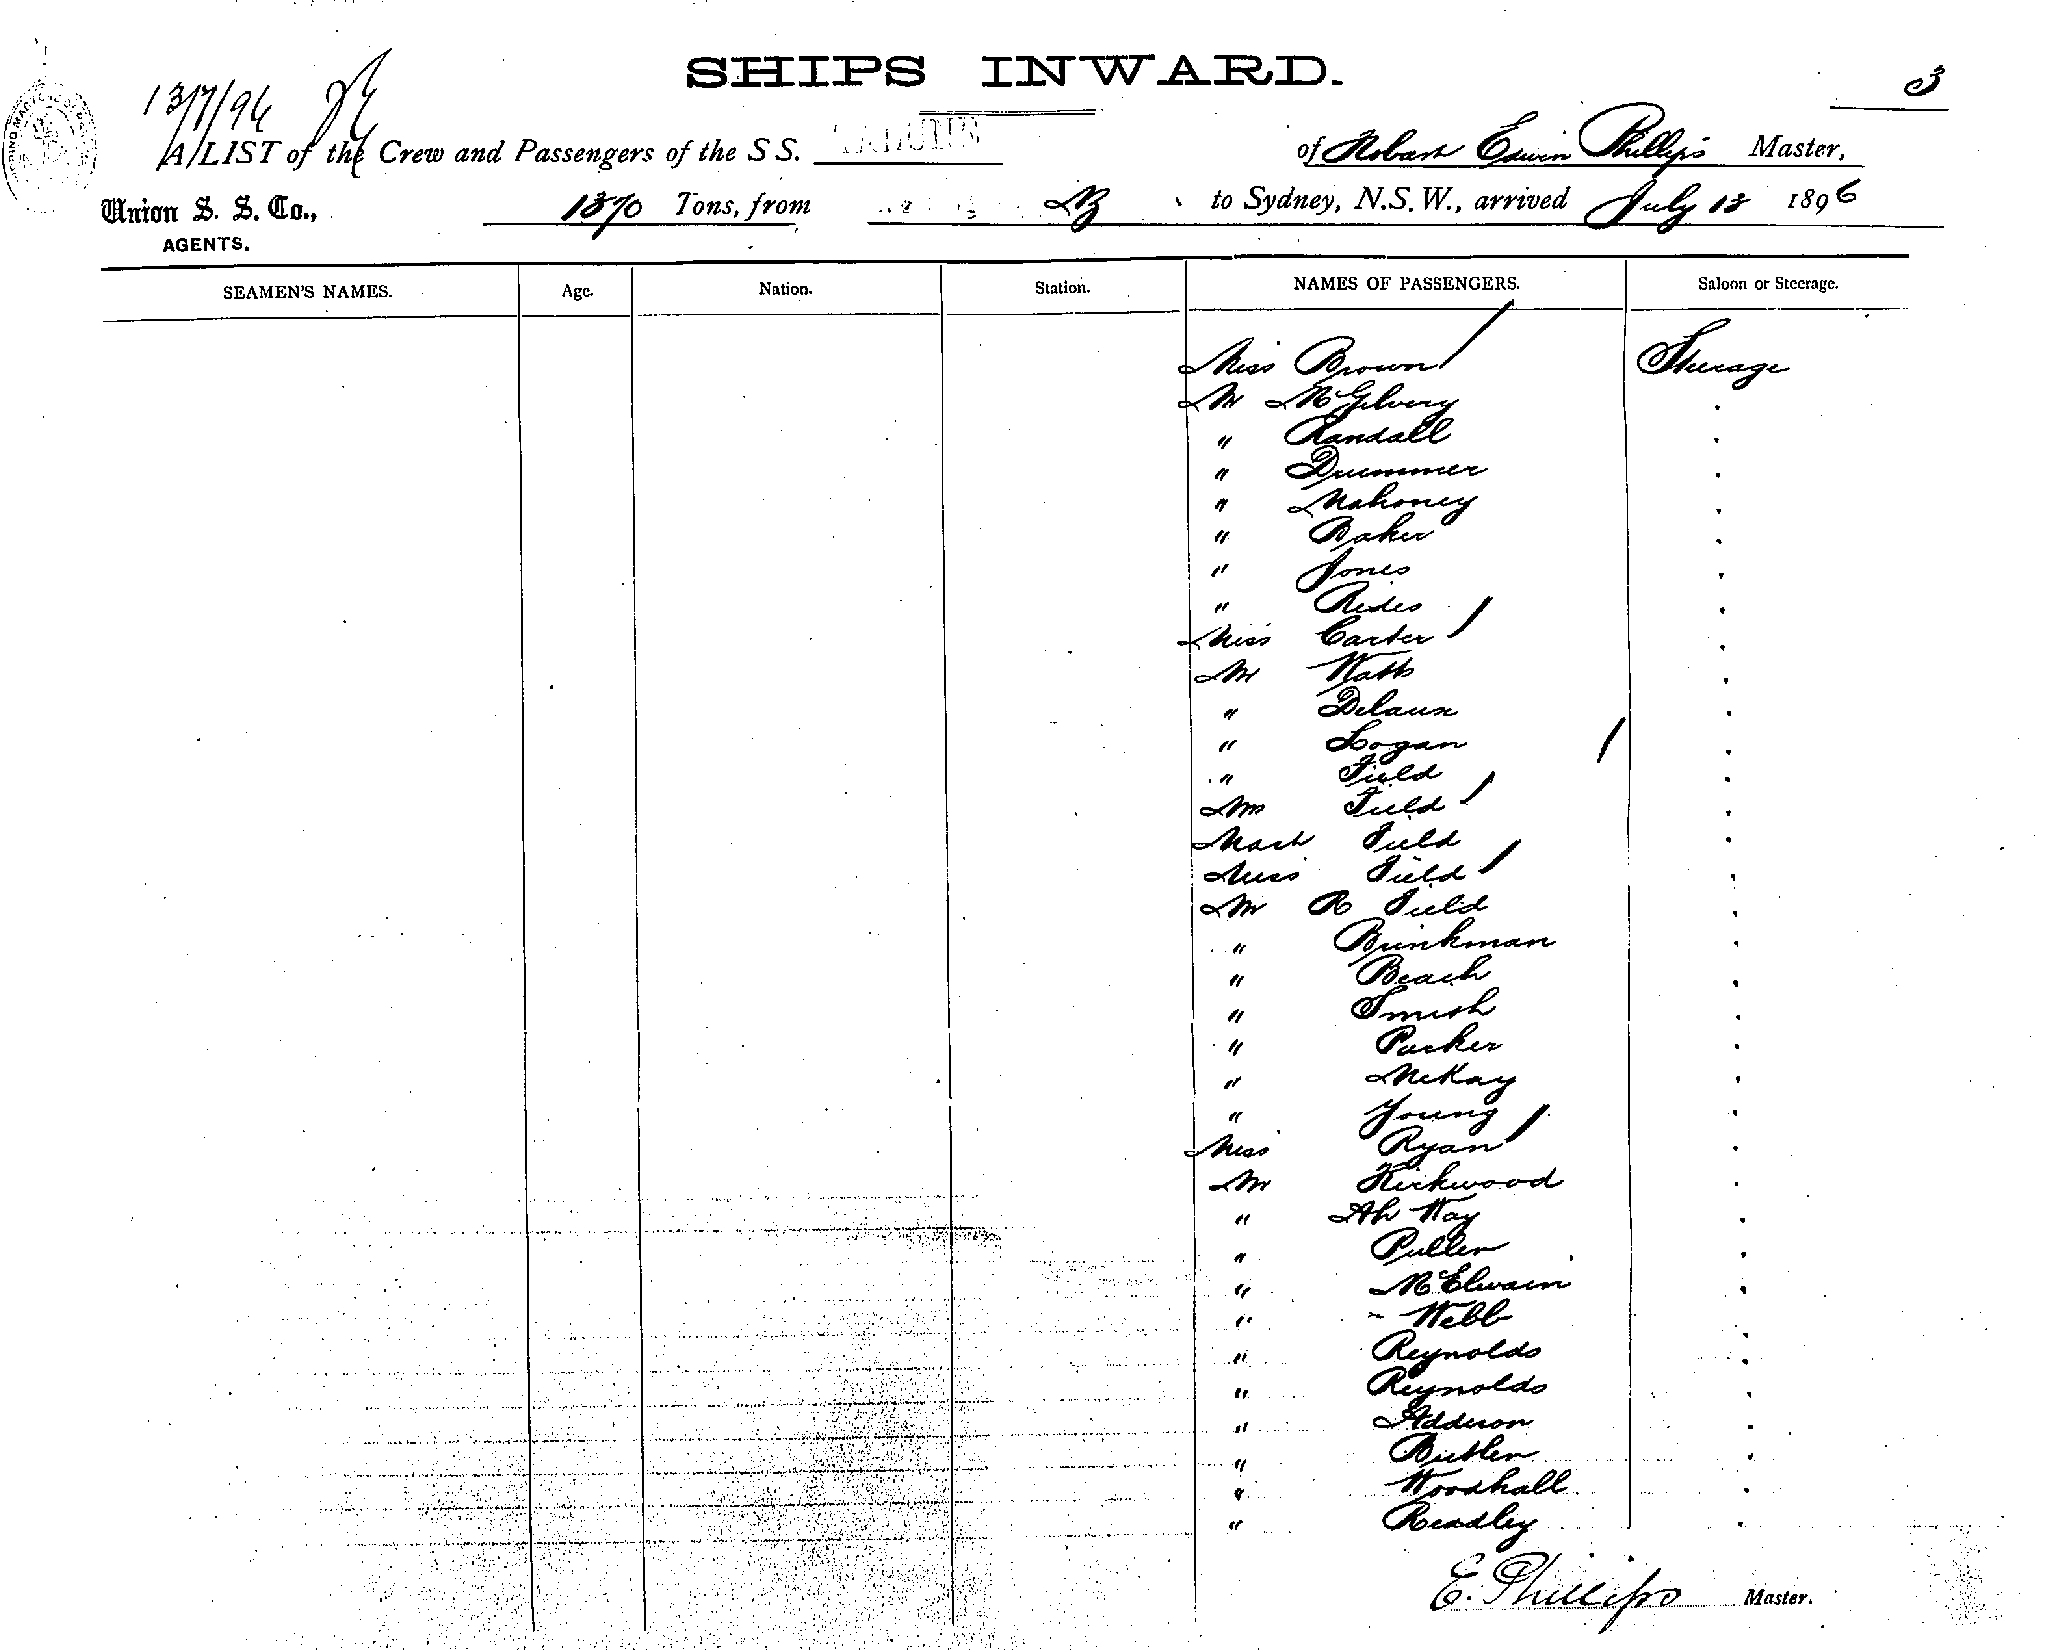 SHIPS INWARD.
3
13/7/96
A LIST of the Crew and Passengers of the S S. of Hobart Edwin Phillips Master,
Union S. S. Co., 1370 Tons, from to Sydney, N.S.W., arrived July 13 1896
AGENTS.
SEAMEN'S NAMES. Age. Nation. Station. NAMES OF PASSENGERS. Saloon or Steerage.
Miss Brown Steerage
Mr McGilvery
" Randall
" Drummer
" Mahoney
" Baker
" Jones
" Rides
Miss Carter
Mr Watts
" Delaux
" Logan
" Field
Mrs Field
Mast Field
Miss Field
Mr R Field
" Brinkman
" Beach
" Smith
" Parker
" McKay
" Young
Miss Ryan
Mr Kirkwood
" Ah Way
" Puller
" McElwain
" Webb
" Reynolds
" Reynolds
" Adderson
" Butler
" Woodhall
" Readley
E. Phillips Master.